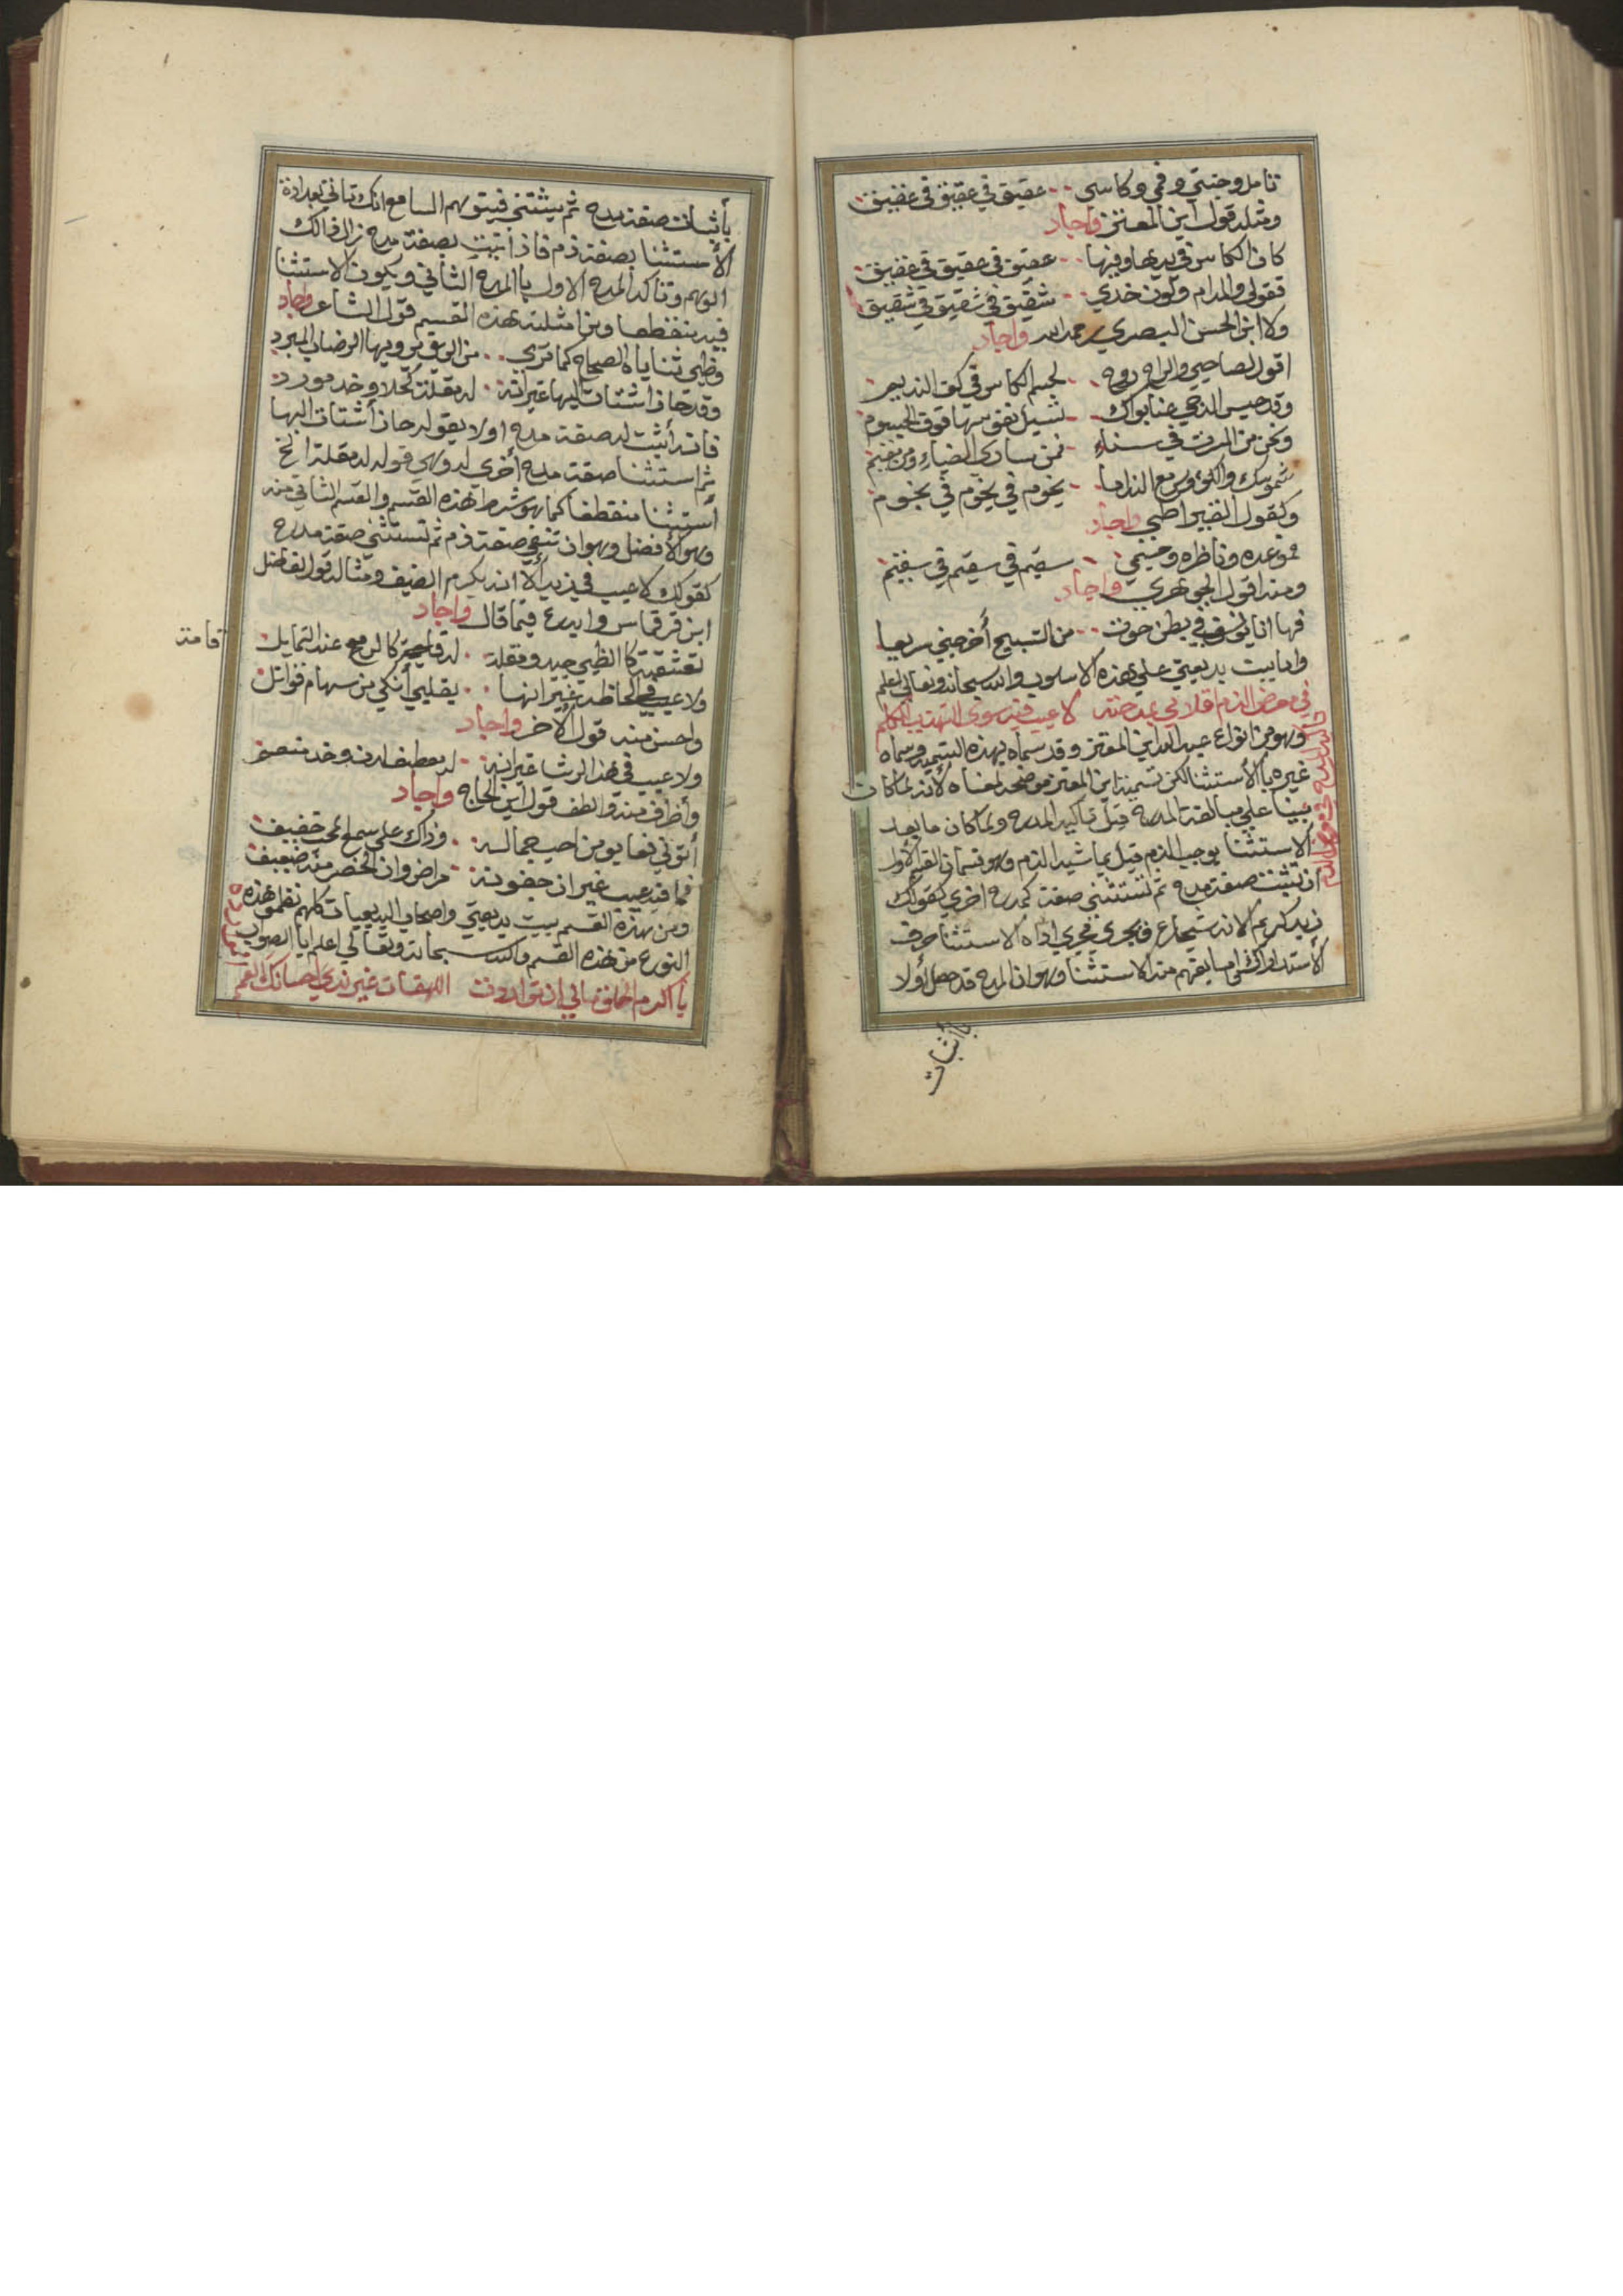 تامل وجنتي وفمي وكاسى عقيق في عقيق في عقيق
ومثله قول ابن المعتز واجاد
كان الكاس في يدها وفيها عقيق في عقيق في عقيق
فقولي والمدام ولون خدي شقيق في شقيق في شقيق
ولا ابن الحسن البصري رحمه الله واجاد
اقول لصاحبي والراح روح لجسم الكاس في كف النديم
وقد حبس الدجى عنا بواك
ونحن من المرت في سناء فمن سارى الضياء ومن مقيم
شموسك والكؤوس مع الندامى نجوم في نجوم في نجوم
وكقول القيراطي واجاد
فموعده وناظره وجسمي سقيم في سقيم في سقيم
ومنه اقول الجوهري واجاد
فها انا يونس في بطن حوت من التسبيح أخرجني سريعا
واما بيت بديعيتي على هذه الاسلوب والله سبحانه وتعالى اعلم
في معرض الذم لا عيب فيه سوى
وهو من انواع عبد الله ابن المعتز وقد سماه بهذه التسمية وسماه
غيره بالأستثنا لكن تسمية ابن المعتز موضحه لمعناه لأنه لما كان
مبينا على مبالغة المدح قيل تاكيد المدح ولما كان ما بعد
الاستثنا يوجب الذم قيل بما شبه الذم وهو قسمان القسم الأول
أن تثبت صفة مدح ثم تستثنى صفة مدح اخرى كقولك
زيد كريم الا انه شجاع فيجري مجري اداة الاستثنا حرف
الأستدراك وهو ان المدح قد حصل أولا
تاكيد المدح في معرض الذم
بأثبات
بأثبات صفة مدح ثم يستثنى فيتوهم السامع انك تاتي بعد اداة
الأستثنا بصفة ذم فاذا اتيت بصفة مدح زال ذالك
الوهم وتاكد المدح الاول باالمدح الثاني ويكون الاستثنا
فيه منقطعا ومن امثلة هذه القسم قول الشاعر واجاد
وظبي ثناياه الصحاح كما ترى من الريق يرويها الرضاب المبرد
وقد حاز اشتات البها غير انه له مقلة كحلا وخد مورد
فانه أثبت له صفة مدح اولا بقوله حاز أشتات البها
ثم استثنا صفة مدح أخرى له وهي قوله له مقلة الخ
أستثنا منقطعا كما هو شرط هذه القسم والقسم الثاني منه
وهو الأفضل وهو ان تنفي صفة ذم ثم تستثنى صفة مدح
كقولك لا عيب في زيد ألا انه يكرم الضيف ومثاله قول الفاضل
ابن قرقماس وابدع فيما قال واجاد
تعشقته كا الظبي جيد ومقلة له كا لرمح عند التمايل
قامة
ولا عيب في الحاظه غير انها بقلبي أنكى من سهام قواتل
واحسن منه قول الأخر واجاد
ولا عيب في هذا الرشا غير انه له معطف لدن وخد منعم
وأظرف منه والطف قول ابن الحاج واجاد
أتوني فعابو من احب جماله وذاك على سمع المحب خفيف
فما فيه عيب غير ان جفونه مراض وان الخصر منه ضعيف
ومن هذه القسم بيت بديعيتي واصحاب البديعيات كلهم نظموا هذه
النوع من هذه القسم والله سبحانه وتعالى اعلم با الصواب
يا اكرم الخلق مالي ان توا غير ندي احسانك العمم